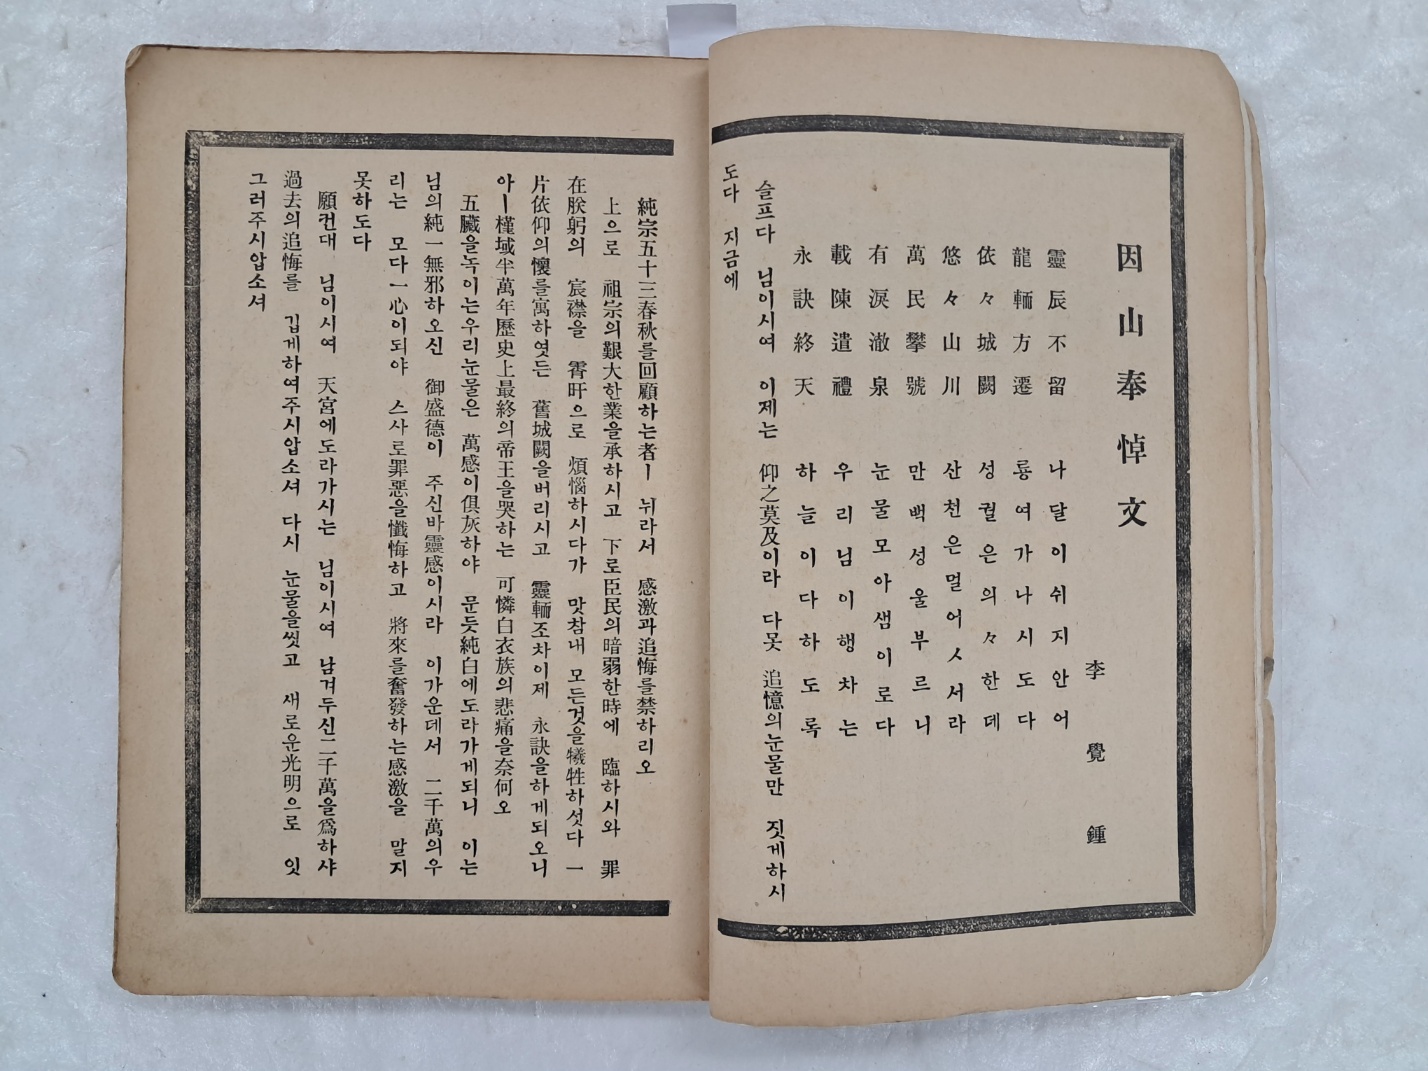 因山奉悼文
李覺鍾
靈辰不留 나달이쉬지안어
龍輀方遷 룡여가나시도다
依々城闕 성궐은의々한데
悠々山川 산천은멀어ㅅ서라
萬民攀號 만백성울부르니
有淚澈泉 눈물모아샘이로다
載陳遣禮 우리님이행차는
永訣終天 하늘이다하도록
슬프다 님이시여 이제는 仰之莫及이라 다못 追憶의눈물만 짓게하시
도다 지금에
純宗五十三春秋를回顧하는者ー 뉘라서 感激과追悔를禁하리오
上으로 祖宗의艱大한業을承하시고 下로臣民의暗弱한時에 臨하시와 罪
在朕躬의 宸襟을 霄旰으로 煩惱하시다가 맛참내 모든것을犧牲하섯다 一
片依仰의懷를寓하엿든 舊城闕을버리시고 靈輀조차이제 永訣을하게되오니
아ー槿域半萬年歷史上最終의帝王을哭하는 可憐白衣族의悲痛을奈何오
五臟을녹이는우리눈물은 萬感이俱灰하야 문듯純白에도라가게되니 이는
님의純一無邪하오신 御盛德이 주신바靈感이시라 이가운데서 二千萬의우
리는 모다一心이되야 스사로罪惡을懺悔하고 將來를奮發하는感激을 말지
못하도다
願컨대 님이시여 天宮에도라가시는 님이시여 남겨두신二千萬을爲하샤
過去의追悔를 깁게하여주시압소셔 다시 눈물을씻고 새로운光明으로 잇
그러주시압소셔